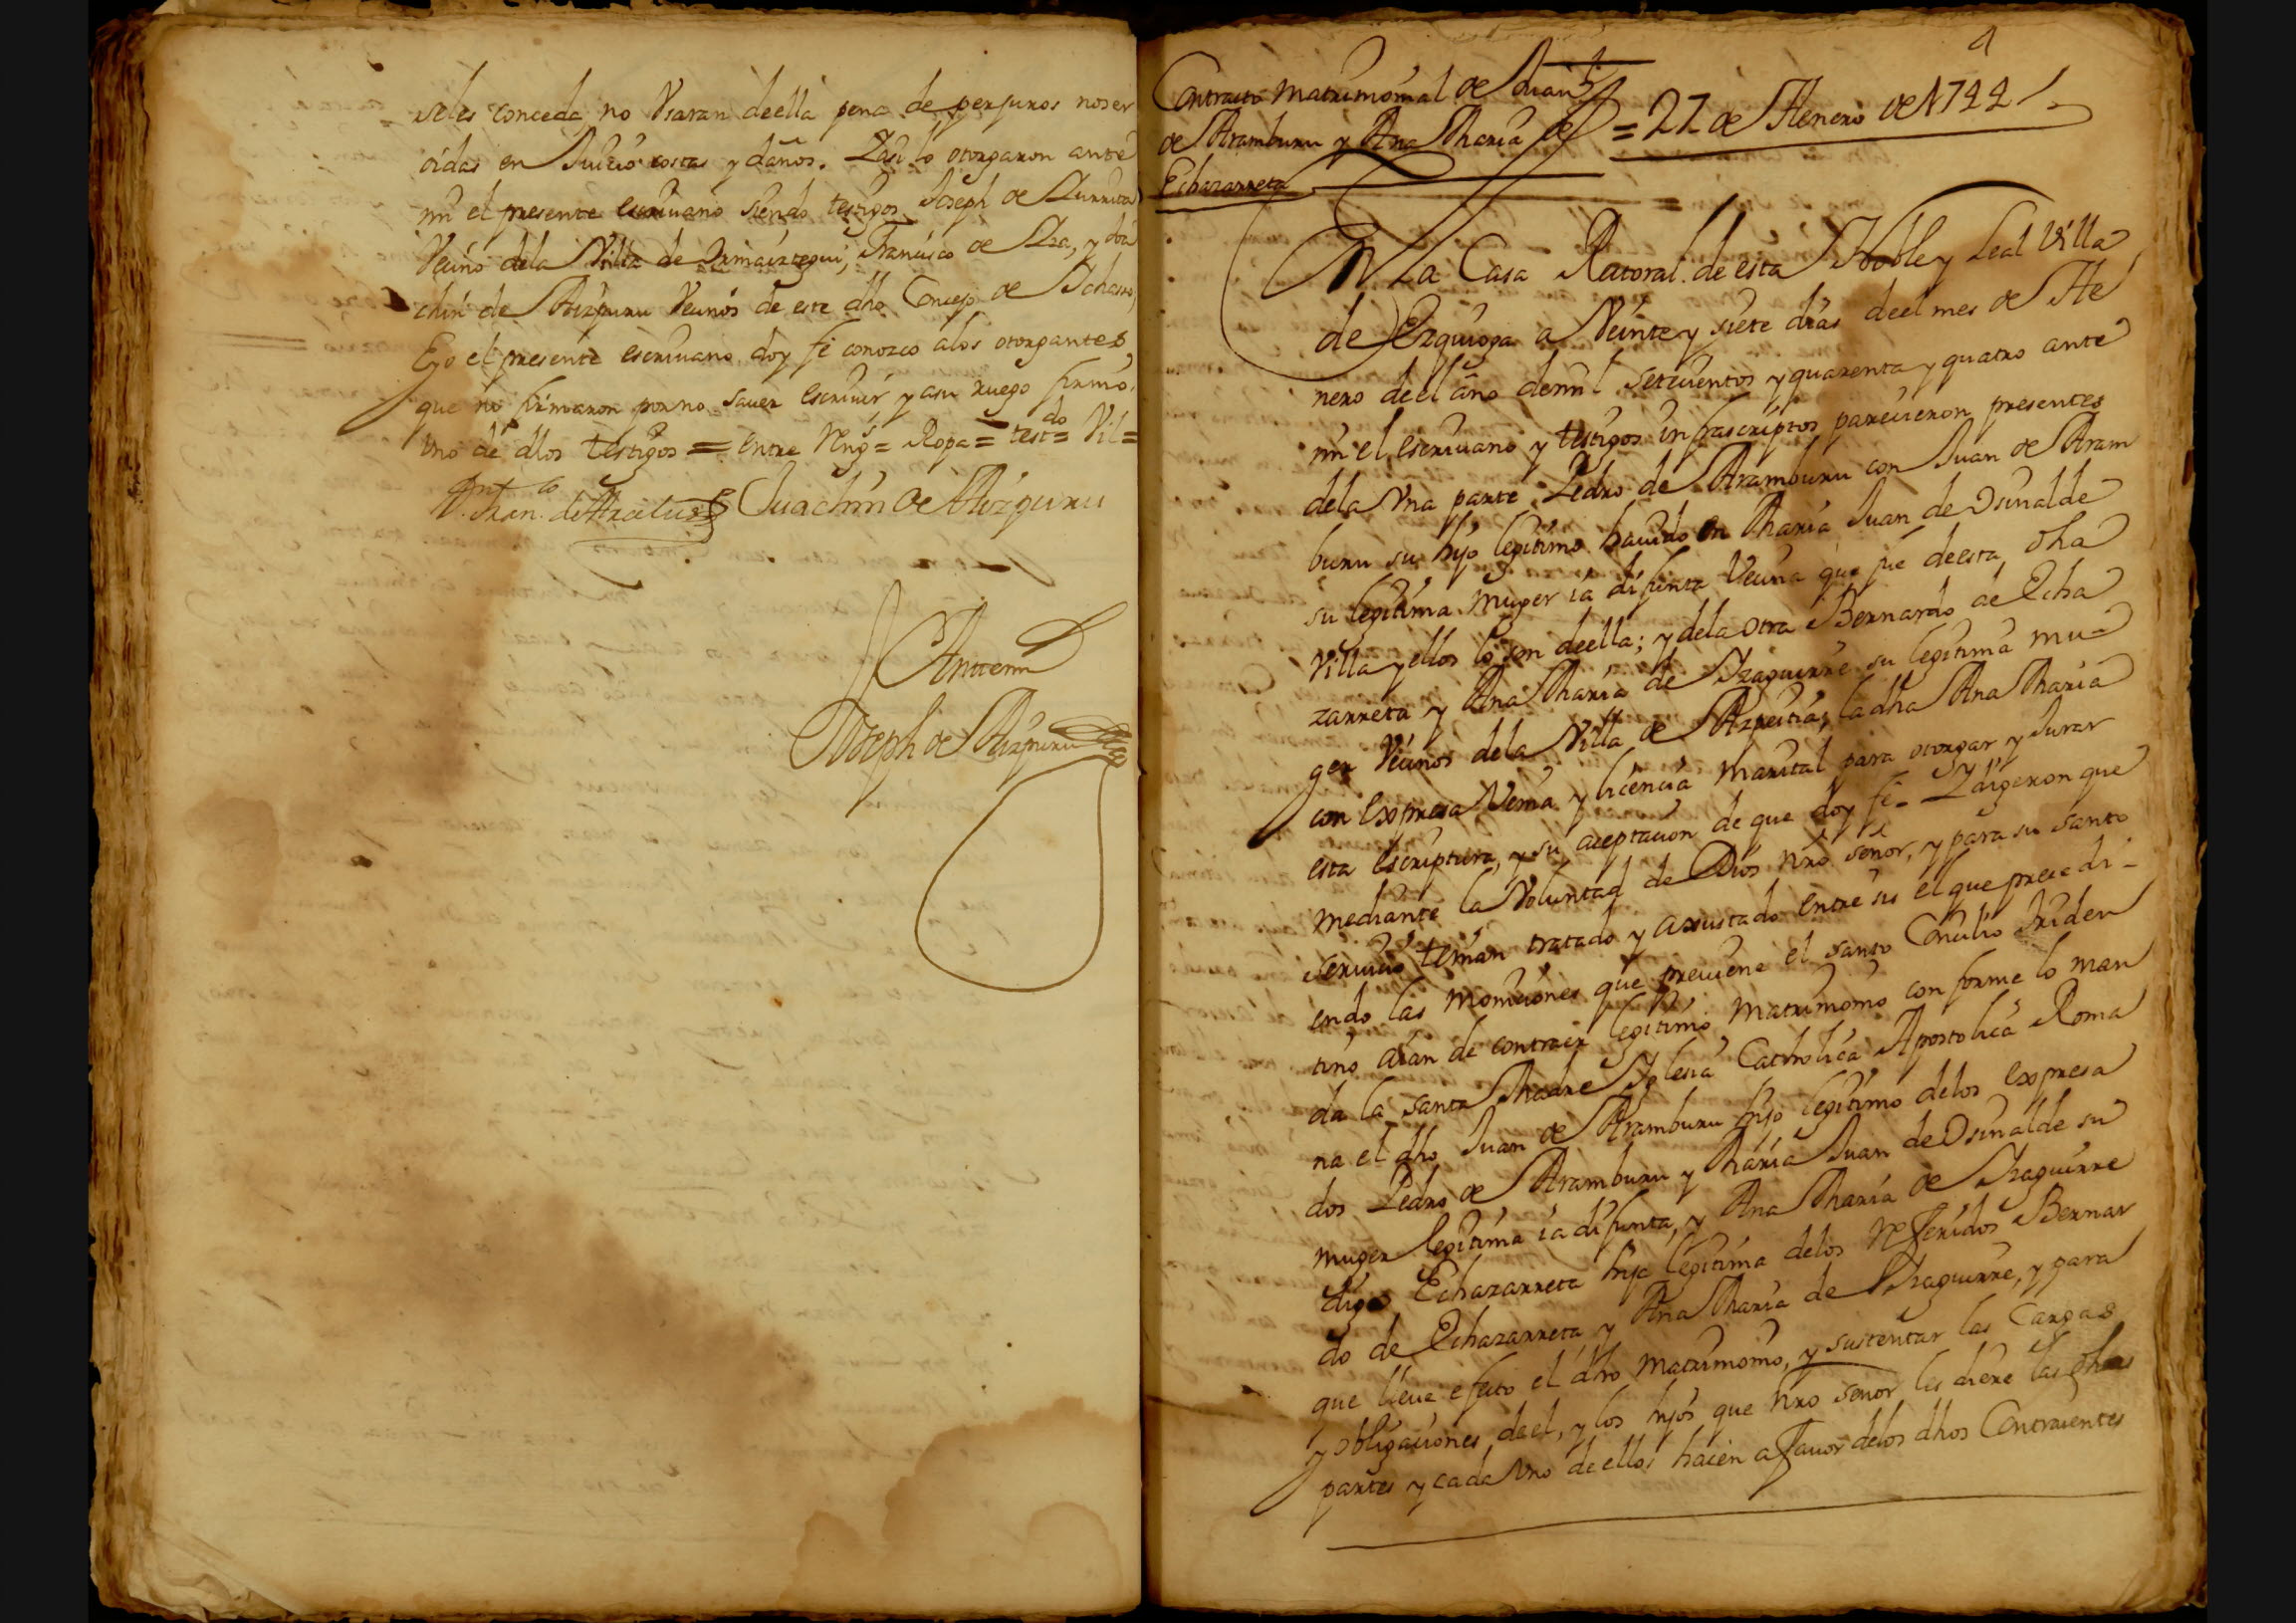 seles conceda no Vsaran deella pena de perjuros noser
oidas en Juicio costas y daños. Y asi lo otorgaron ante
mi el presente escriuano siendo testigos Joseph de Zurrutu
Vecino dela Villa de Ormaiztegui, Francisco de Aza, y Joa
chin de Aizpuru Vecinos de este dho Concejo de Ichasso,
E yo el presente escriuano doy fe conozco alos otorgantes
que no firmaron por no sauer escriuir y asu ruego firmo
vno de dhos testigos = entre Rengs = Ropa = testdo = Vil =
Juachin de Aizpuru
Antemi
Joseph de Aizpuru
4
Contracto matrimonial de Juan
de Aramburu y Ana Maria de
Echazarreta
= 27 de Henero de 1744
En La Casa Rectoral de esta Noble y Leal Villa
de Ezquioga a Veinte y siete dias deel mes de He
nero deel año demil setecientos y quarenta y quatro ante
mi el escriuano y testigos infrascriptos parecieron presentes
dela vna parte Pedro de Aramburu con Juan de Aram
buru su hijo legitimo hauido en Maria Juan de Osinalde
su legitima muger ia difunta Vecina que fue deesta dha
Villa y ellos lo son deella; y dela otra Bernardo de Echa
zarreta y Ana Maria de Yzaguirre su legitima mu-
ger Vecinos dela Villa de Azpeitia, la dha Ana Maria
con expresa Venia y licencia marital para otorgar y Jurar
esta escriptura, y su aceptacion de que doy fe = Y digeron que
mediante la Voluntad de Dios nro señor, y para su santo
seruicio tenian tratado y axustado entre sis el que precedi-
endo las moniciones que preuiene el santo Concilio triden
tino aian de contraer legitimo matrimonio con forme lo man
da la santa Madre Yglesia Catholica Apostolica Roma
na el dho Juan de Aramburu hijo legitimo delos expresa
dos Pedro de Aramburu y Maria Juan de Osinalde su
muger legitima ia difunta, y Ana Maria de Yzaguirre
digo Echazarreta hija legitima delos Referidos Bernar
do de Echazarreta y Ana Maria de Yzaguirre, y para
que lleue efecto el dho matrimonio, y sustentar las Cargas
y obligaciones deel, y los hijos que nro señor les diere las dhas
partes y cada vno de ellos hacen a fauor delos dhos Contraientes